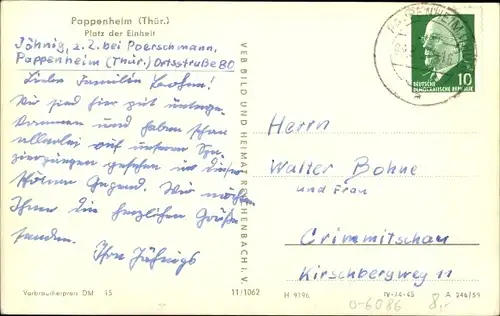 Pappenheim (Thür.)
Platz der Einheit
Jöhnig, z.Z. bei Poerschmann,
Pappenheim (Thür.) Ortsstraße 80
Liebe Familie Bohne!
Wir sind hier gut unterge-
kommen und haben schon
allerlei auf unseren Spa-
ziergängen gesehen in dieser
schönen Gegend. Wir möchten
Ihnen die herzlichen Grüße
senden.
Ihre Jöhnigs
Verbraucherpreis DM 15
11/1062
VEB BILD UND HEIMAT REICHENBACH I. V.
10
DEUTSCHE
DEMOKRATISCHE REPUBLIK
Herrn
Walter Bohne
und Frau
Crimmitschau
Kirschbergweg 11
H 9196
IV-14-45
A 246/59
0-6086
8,-